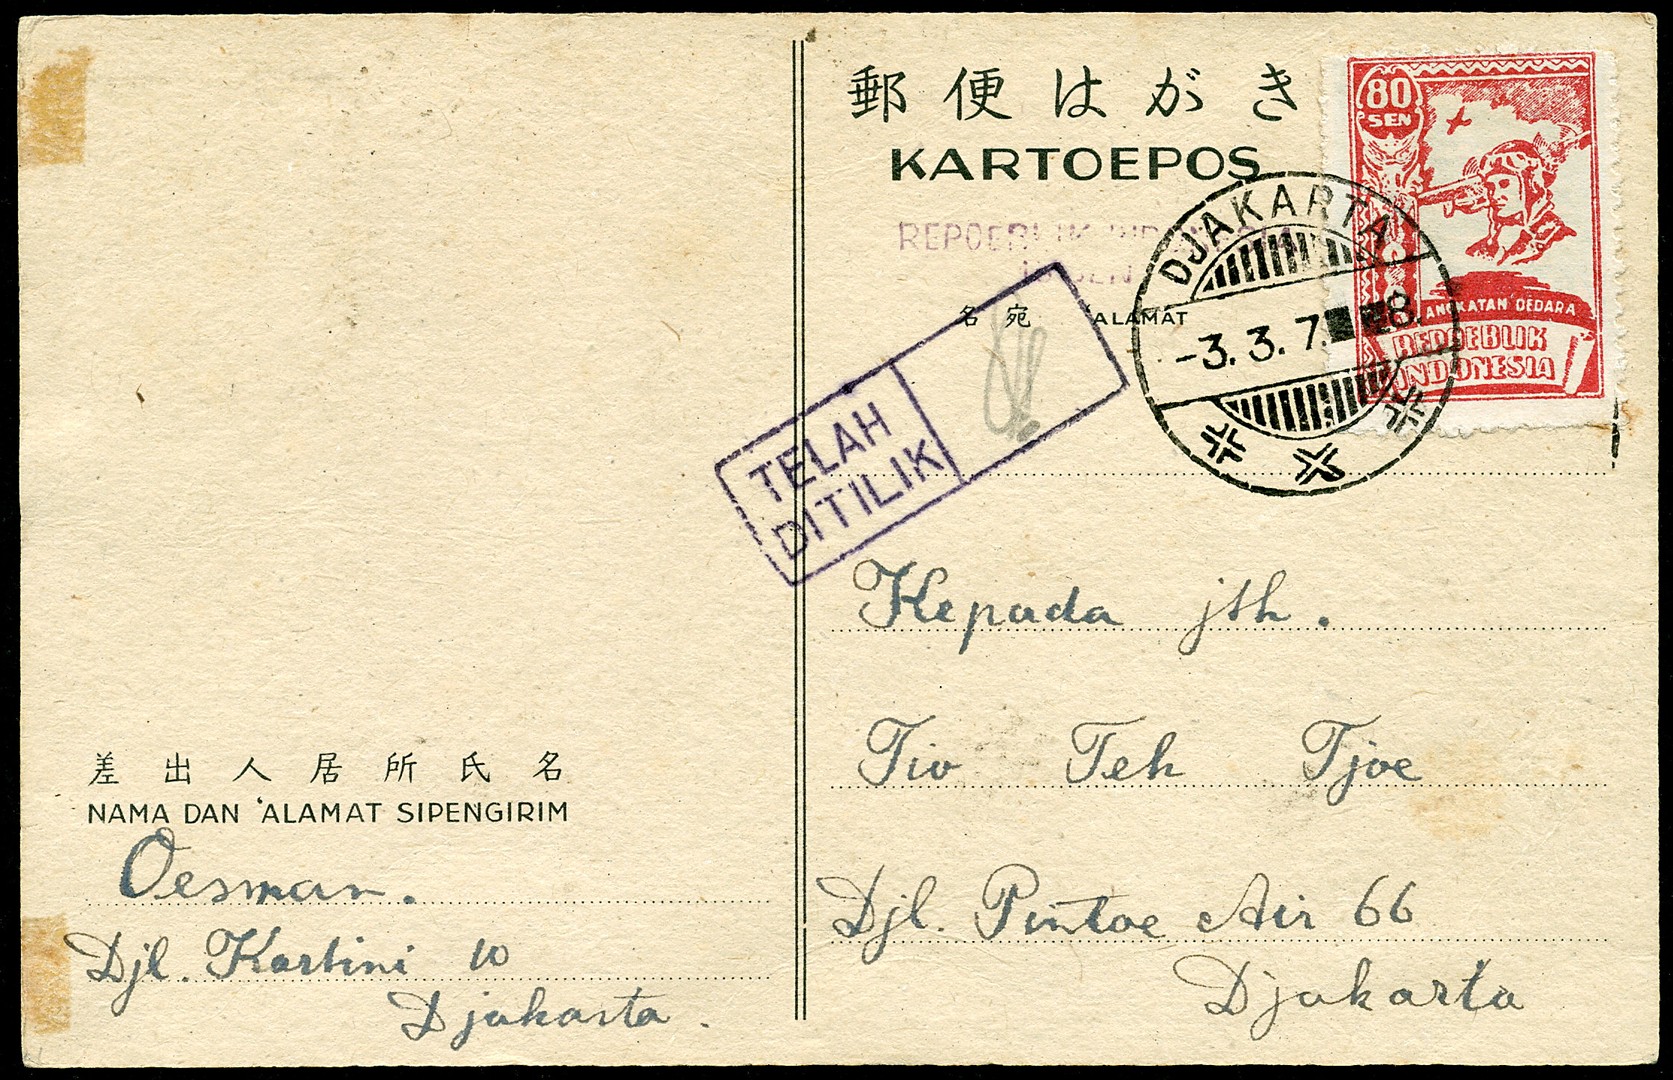 郵便はがき
KARTOEPOS
REPOEBLIK INDONESIA
SEN
名宛 'ALAMAT
80
SEN
ANGKATAN OEDARA
REPOEBLIK
INDONESIA
DJAKARTA
-3.3.7. 8.
TELAH
DITILIK
Kepada jth.
Tio Teh Tjoe
Djl. Pintoe Air 66
Djakarta
差出人居所氏名
NAMA DAN 'ALAMAT SIPENGIRIM
Oesman.
Djl. Kartini 10
Djakarta.